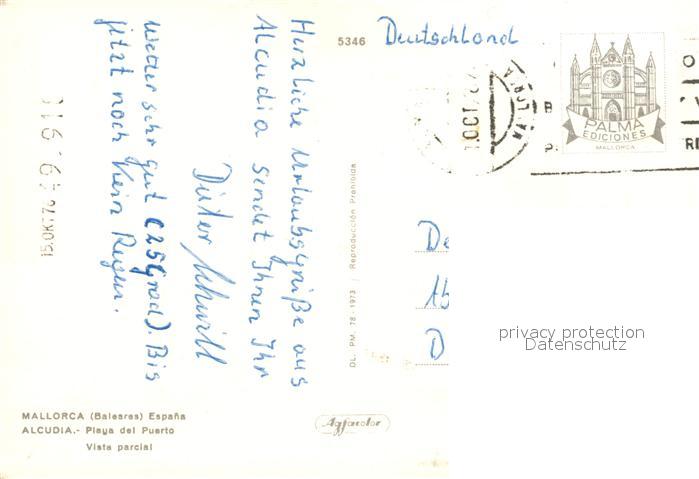 Herzliche Urlaubsgrüße aus
Alcudia sendet Ihnen Ihr
Dieter
Wetter sehr gut (25 Grad). Bis
jetzt noch kein Regen.
15.OKT.76
MALLORCA (Baleares) España
ALCUDIA.- Playa del Puerto
Vista parcial
Agfacolor
DL. PM. 78 - 1973 / Reproducción Prohibida
5346
Deutschland
OCT
PALMA
EDICIONES
MALLORCA
De
D
privacy protection
Datenschutz